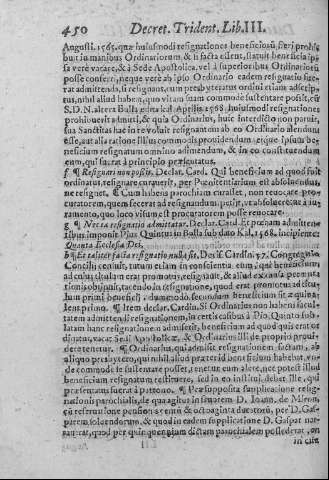 450 Decret. Trident. Lib. III.
Augusti. 1565. quæ huiusmodi resignationes beneficiorũ, fieri prohi
buit in manibus Ordinariorum, & si factæ essent, statuit beneficia ip
sa verè vacare, & à Sede Apostolica, vel à superioribus Ordinariis
posse conferri, neque verè ab ipso Ordinario eadem resignatio fue
rat admittenda, si resignans, cum presbyteratus ordini etiam adscrip-
tus, nihil aliud haberet, quo vitam suam commodè sustentare posset, cũ
S. D. N. altera Bulla edita Kal. Aprilis 1568. huiusmodi resignationes
prohibuerit admitti, & quia Ordinarius, huic interdicto non paruit,
sua Sanctitas hac in re voluit resignantem ab eo Ordinario alendum
esse, aut alia ratione illius commodis providendum, eique ipsum be-
neficium resignatum omnino adimendum, & in eo constituendum
eum, qui fuerat à principio præsentatus.
f ¶ Resignari non possit. Declar. Card. Qui beneficium ad quod fuit
ordinatus, resignare conqueritur, per Pœnitentiarium est absoluendus
ne resignet. ¶ Cum habens parochiam iurasset, non revocare pro-
curatorem, quem fecerat ad resignandum, petiit, vt absolueretur à iu-
ramento, quo loco visum est procuratorem posse revocare.
g ¶ Nec ea resignatio admittatur. Declar. Card. Et pœnam admittene
tibus imposuit Pius Quintus in bulla sub dato Kal. 1568. incipiente:
Quanta Ecclesia Dei.
h ¶ Et aliter facta resignatio nulla sit. Decis. Cardin. 57. Congregatio
Concilij censuit, tutum etiam in conscientia, eum, qui beneficium
ad cuius titulum erat promotus, resignauit, &
tum primi beneficij, dummodo secundum beneficium sit æquiua-
lens primo. ¶ Item declar. Cardin. Si Ordinarius non habens facul-
tatem admittendi resignationem, in certis casibus à Pio Quinto sub-
latam hanc resignationem admiserit, beneficium ad quod quis erat or
dinatus, vacat Sedi Apostolicæ, & Ordinarius illi de proprio proui-
dere tenetur. ¶ Ordinarius, qui admisit resignationem factam, ab
aliquo presbytero, qui nihil aliud præter id beneficium habebat, vn-
de commode se sustentare posset, tenetur eum alere, nec potest illud
beneficium resignatum restituere, sed in eo institui debet ille, qui
præsentatus fuerat à patrono. ¶ Præsupposita supplicatione resig-
nationis parochialis, de qua agitur in favorem D. Ioann. de Miron,
cũ reservatione pensionis centũ & octoaginta ducatorũ, per D. Gas-
parem soluendorum, & quod in eadem supplicatione D. Gaspar nar-
rauerat, quod per quinquennium dictam parochialem possederat, on
in cuiu